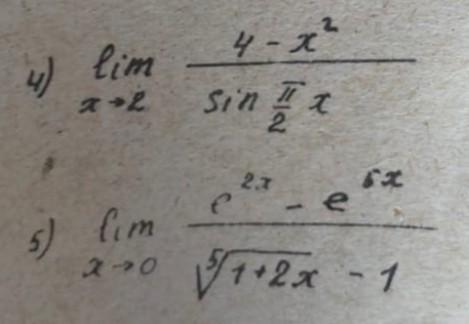 4) lim x→2 (4 - x²) / (sin π/2 x)
5) lim x→0 (e^{2x} - e^{5x}) / (⁵√(1+2x) - 1)